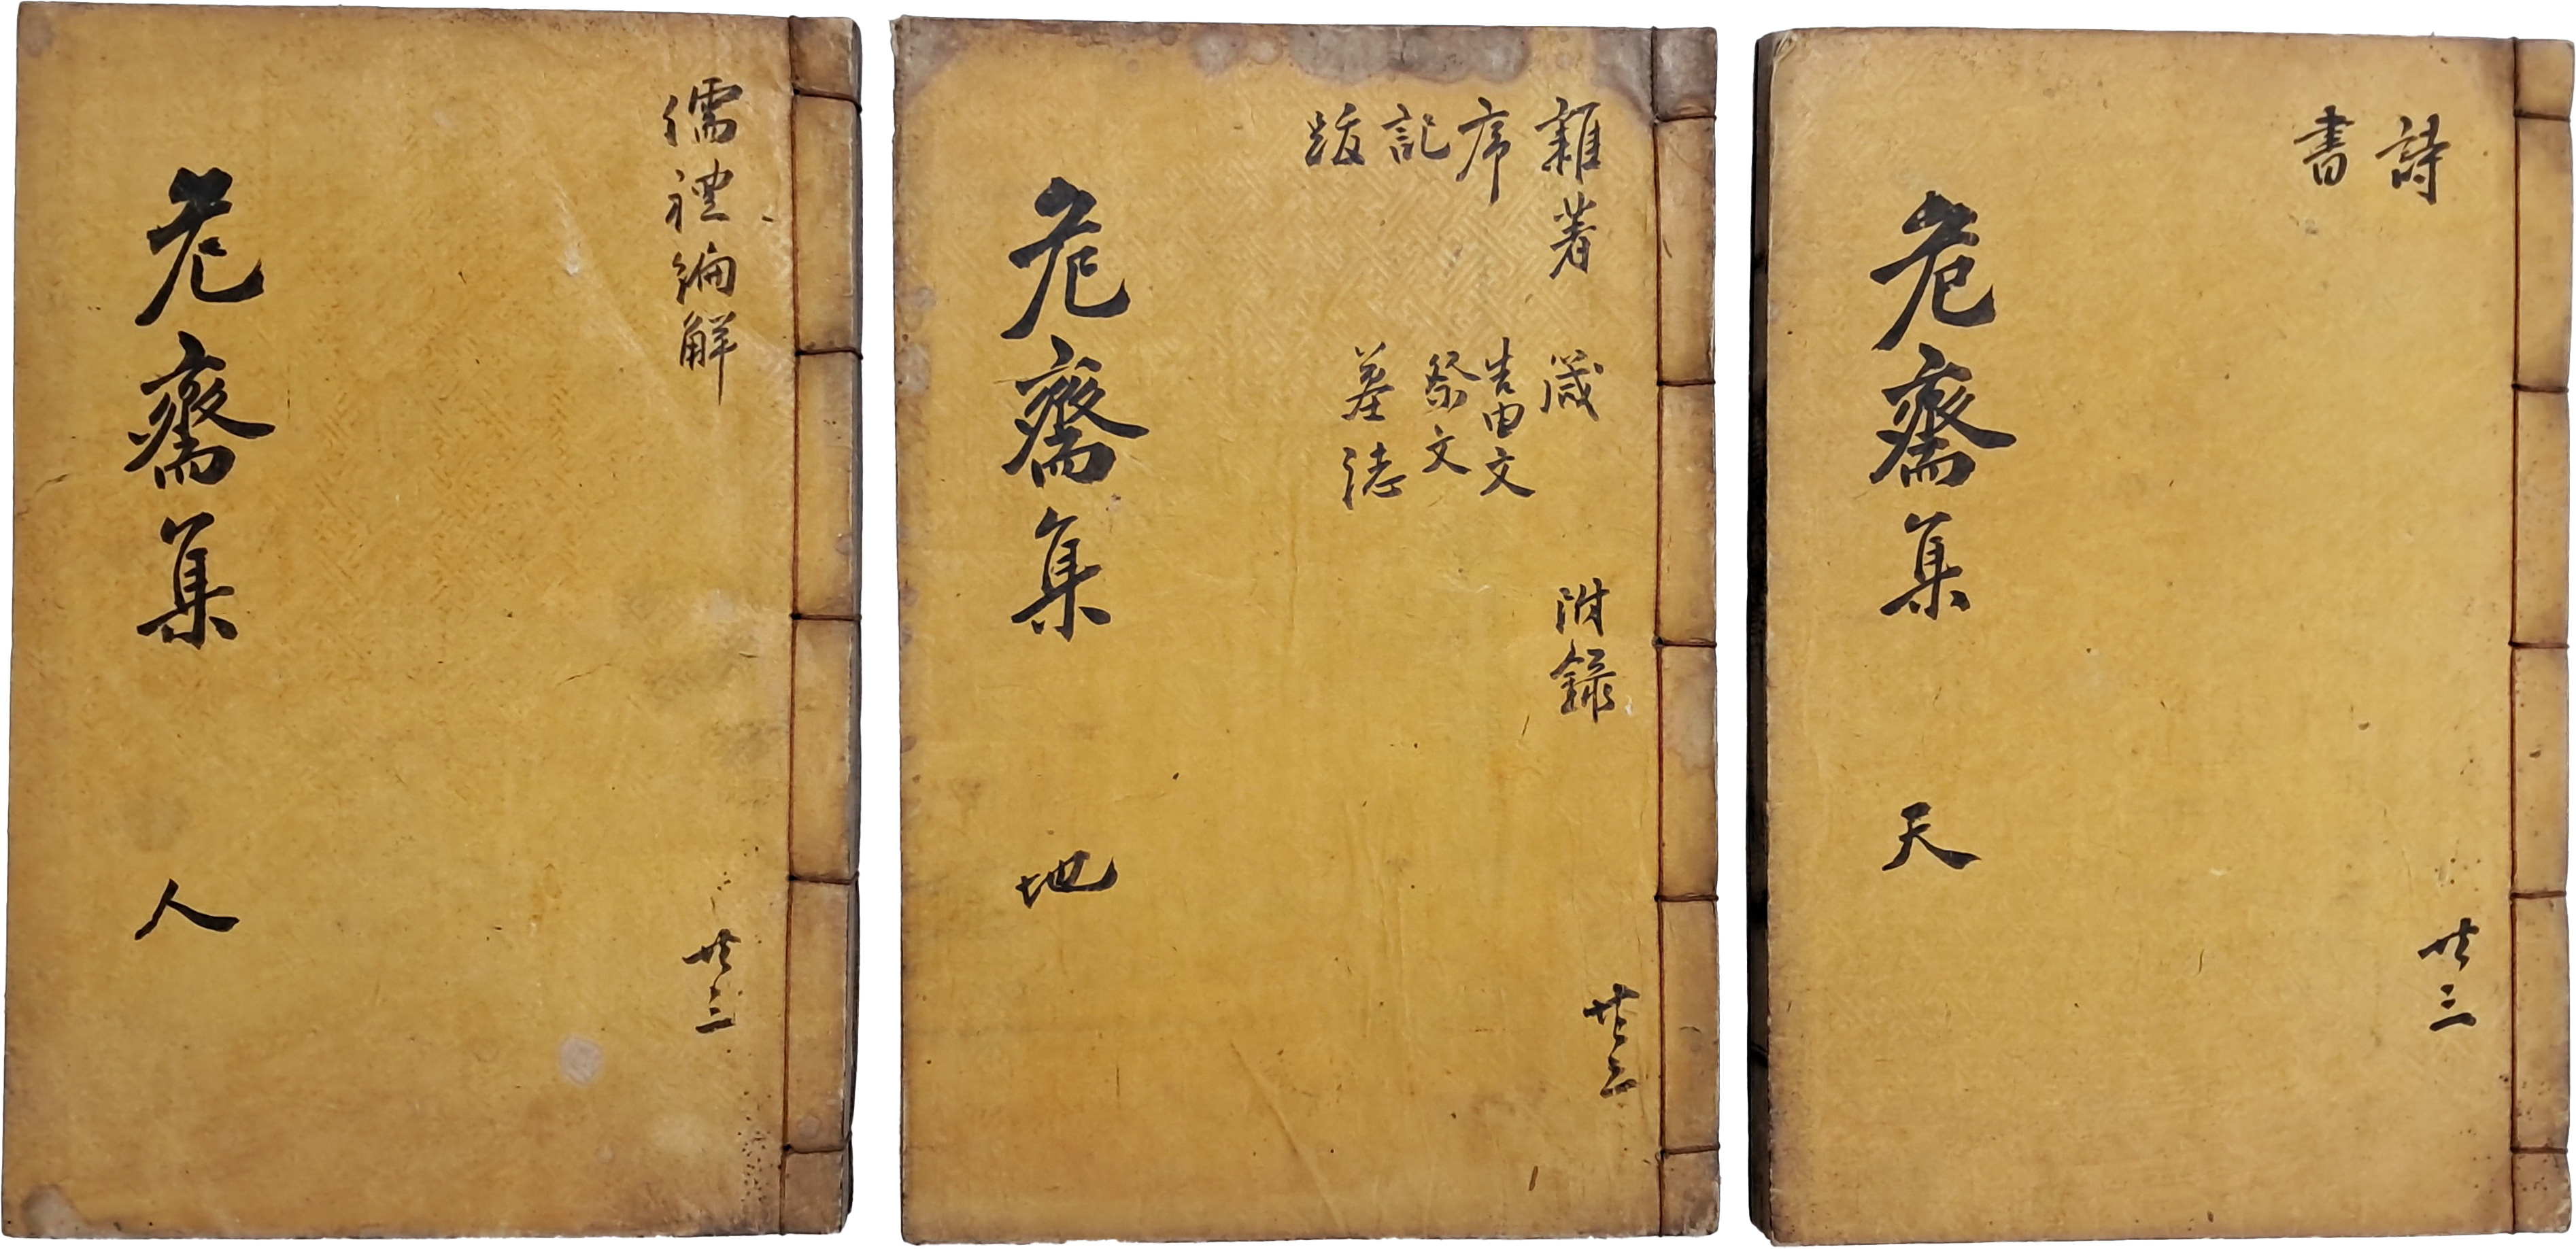 詩
書
共三
危齋集 天
雜著
序
記
跋
箴
告由文
祭文
墓誌
附錄
共三
危齋集 地
儒禮編解
共三
危齋集 人